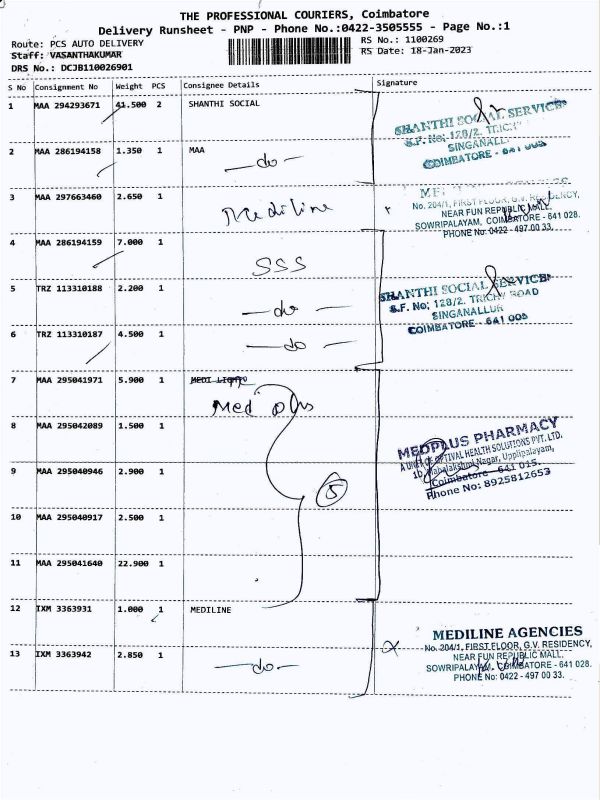 THE PROFESSIONAL COURIERS, Coimbatore
Delivery Runsheet - PNP - Phone No.:0422-3505555 - Page No.:1
Route: PCS AUTO DELIVERY
RS No.: 1100269
Staff: VASANTHAKUMAR
RS Date: 18-Jan-2023
DRS No.: DCJB110026901
S No Consignment No Weight PCS Consignee Details Signature
1 MAA 294293671 41.500 2 SHANTHI SOCIAL
SHANTHI SOCIAL SERVICE
S.F. No: 128/2, TRICHY
SINGANALLUR
COIMBATORE - 641 005
2 MAA 286194158 1.350 1 MAA
-do-
3 MAA 297663460 2.650 1 Mediline
No. 204/1, FIRST FLOOR, G.V. RESIDENCY,
NEAR FUN REPUBLIC MALL,
SOWRIPALAYAM, COIMBATORE - 641 028.
PHONE No: 0422 - 497 00 33.
4 MAA 286194159 7.000 1 SSS
5 TRZ 113310188 2.200 1 -do-
SHANTHI SOCIAL SERVICE
S.F. No: 128/2, TRICHY ROAD
SINGANALLUR
COIMBATORE - 641 005
6 TRZ 113310187 4.500 1 -do-
7 MAA 295041971 5.900 1
Med plus
8 MAA 295042089 1.500 1
MEDPLUS PHARMACY
A UNIT OF OPTIVAL HEALTH SOLUTIONS PVT. LTD.
10, Mahalakshmi Nagar, Upplipalayam,
Coimbatore - 641 015.
Phone No: 8925812653
9 MAA 295040946 2.900 1
5
10 MAA 295040917 2.500 1
11 MAA 295041640 22.900 1
12 IXM 3363931 1.000 1 MEDILINE
MEDILINE AGENCIES
No. 204/1, FIRST FLOOR, G.V. RESIDENCY,
NEAR FUN REPUBLIC MALL,
SOWRIPALAYAM, COIMBATORE - 641 028.
PHONE No: 0422 - 497 00 33.
13 IXM 3363942 2.850 1 -do-